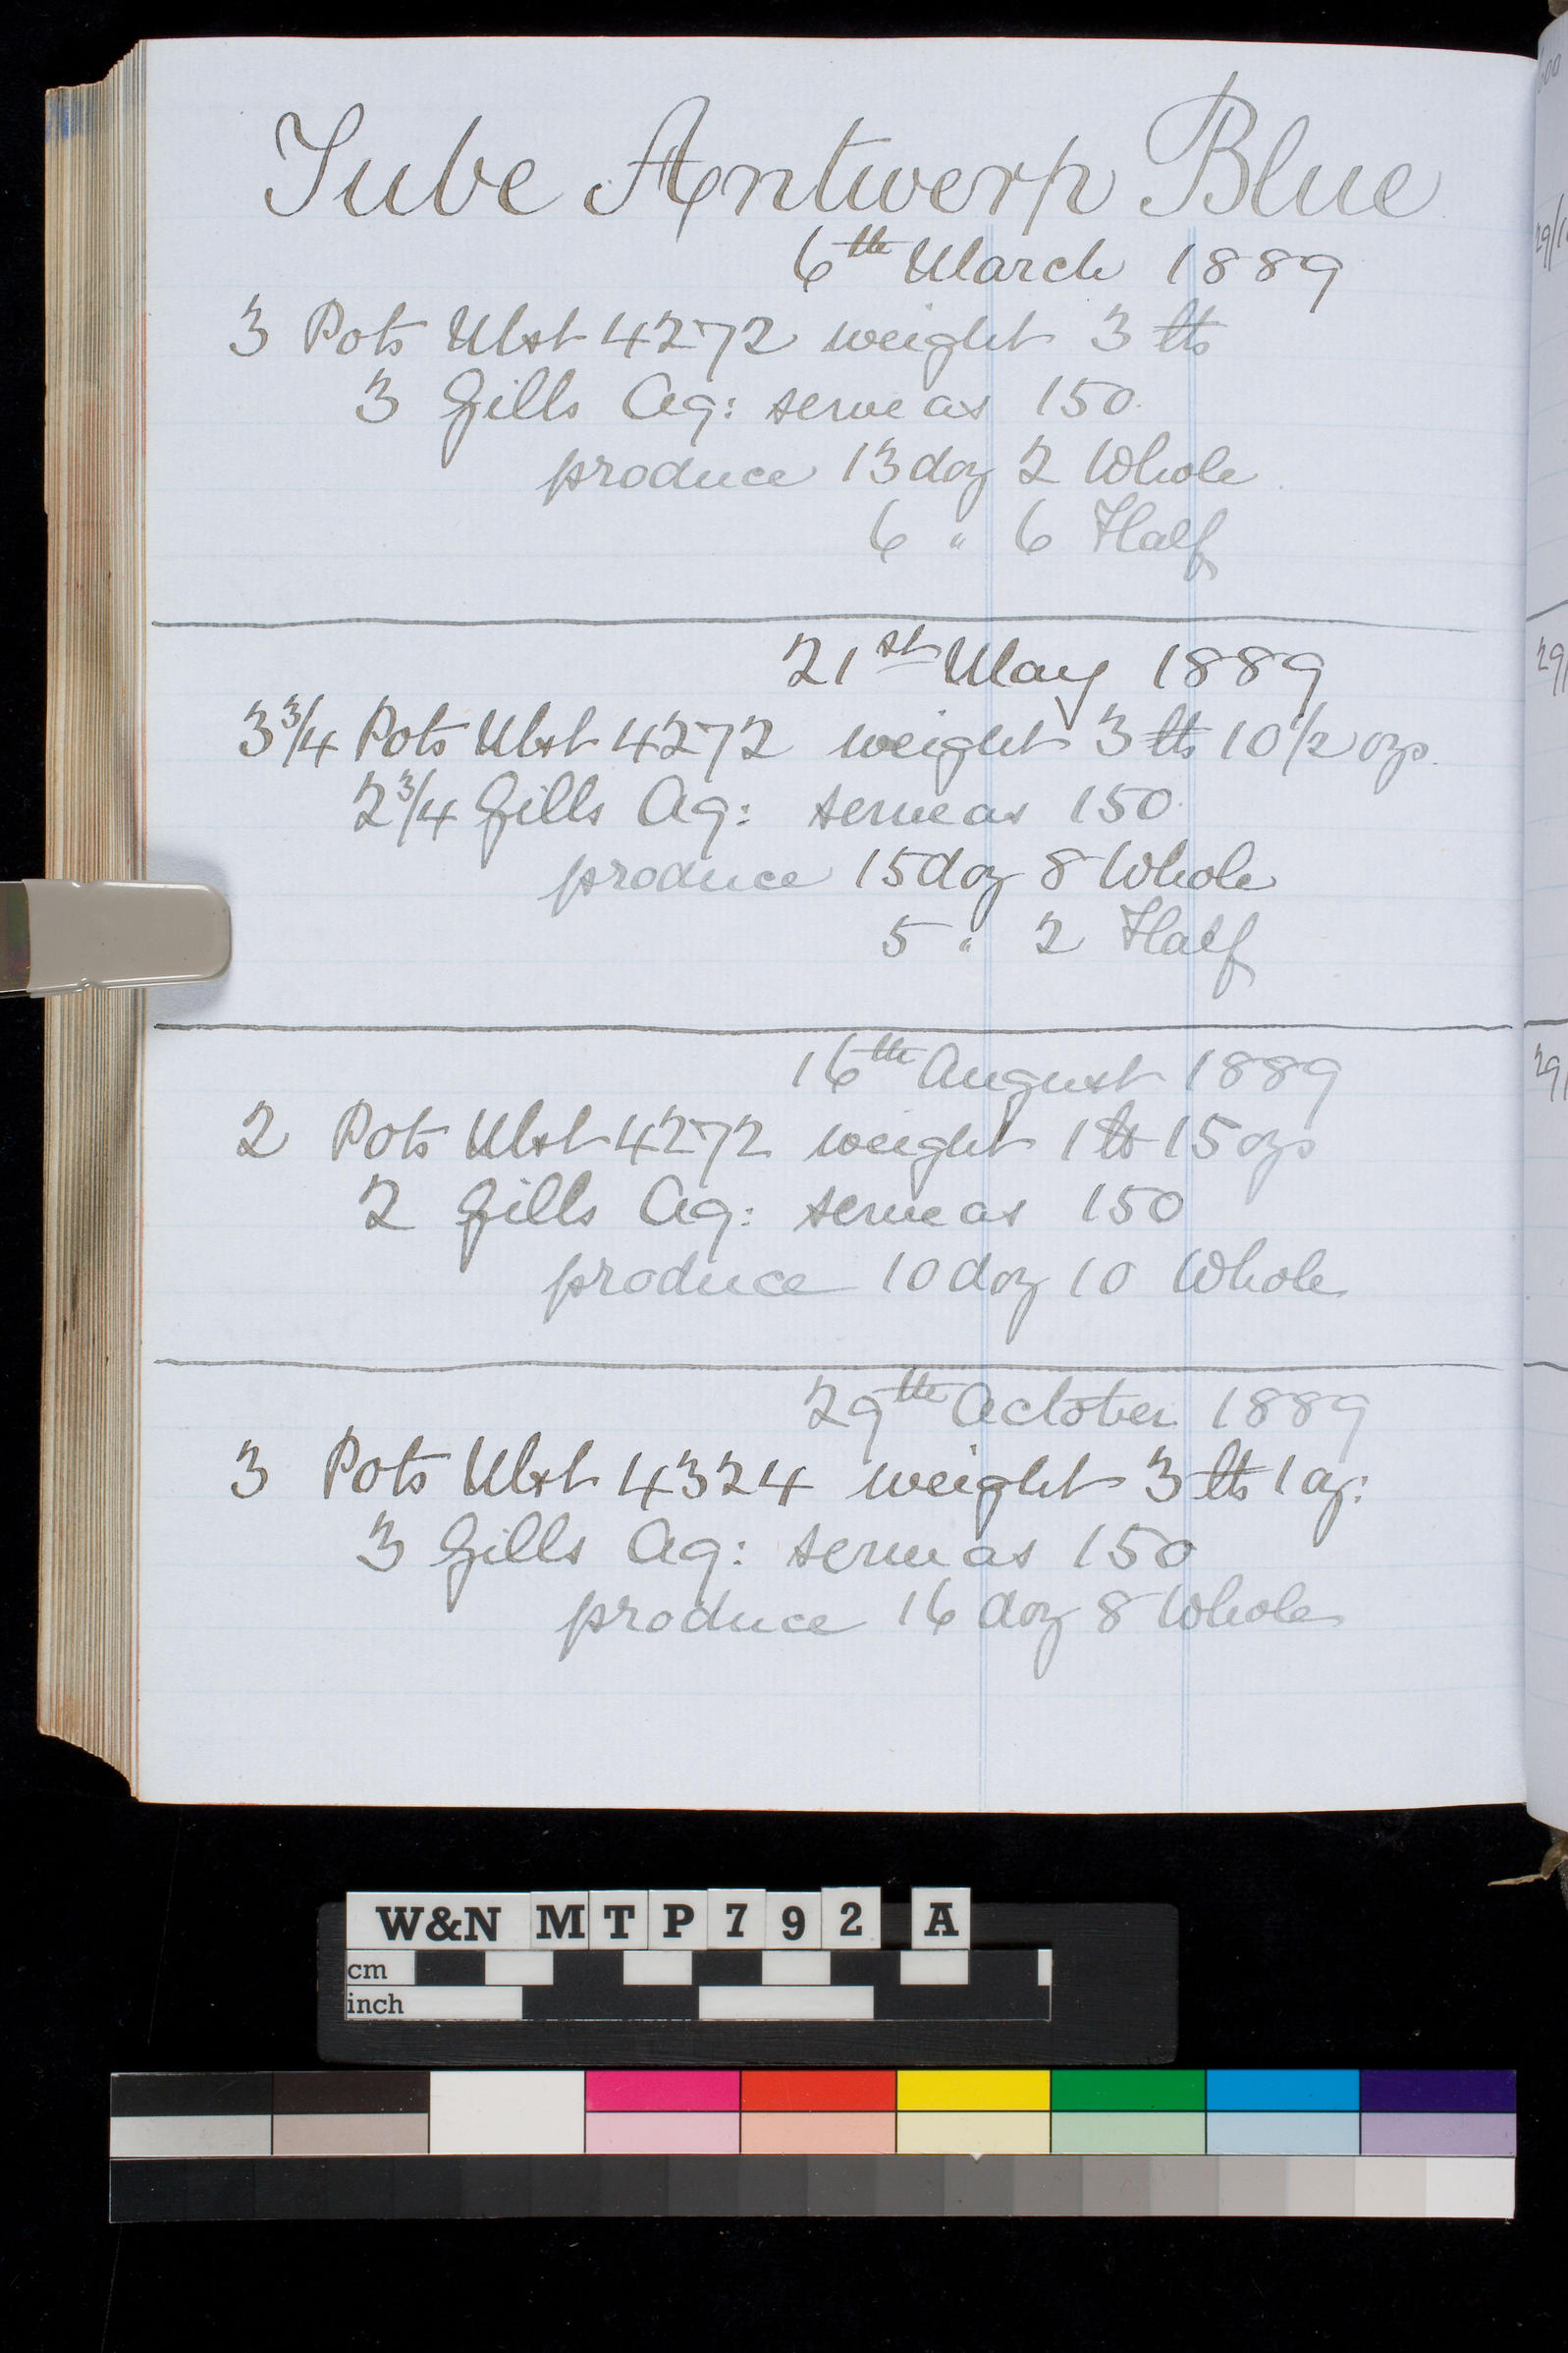 Tube Antwerp Blue
6th March 1889
3 Pots Ulst 4272 weight 3 lbs
3 Gills Aq: serve as 150.
produce 13 doz 2 Whole
6 " 6 Half
21st May 1889
3 3/4 Pots Ulst 4272 weight 3 lbs 10 1/2 ozs.
2 3/4 Gills Aq: serve as 150.
produce 15 doz 8 Whole
5 " 2 Half
16th August 1889
2 Pots Ulst 4272 weight 1 lb 15 ozs
2 Gills Aq: serve as 150
produce 10 doz 10 Whole
29th October 1889
3 Pots Ulst 4324 weight 3 lbs 1 oz:
3 Gills Aq: serve as 150
produce 16 doz 8 Whole
W&N MTP792 A
cm
inch